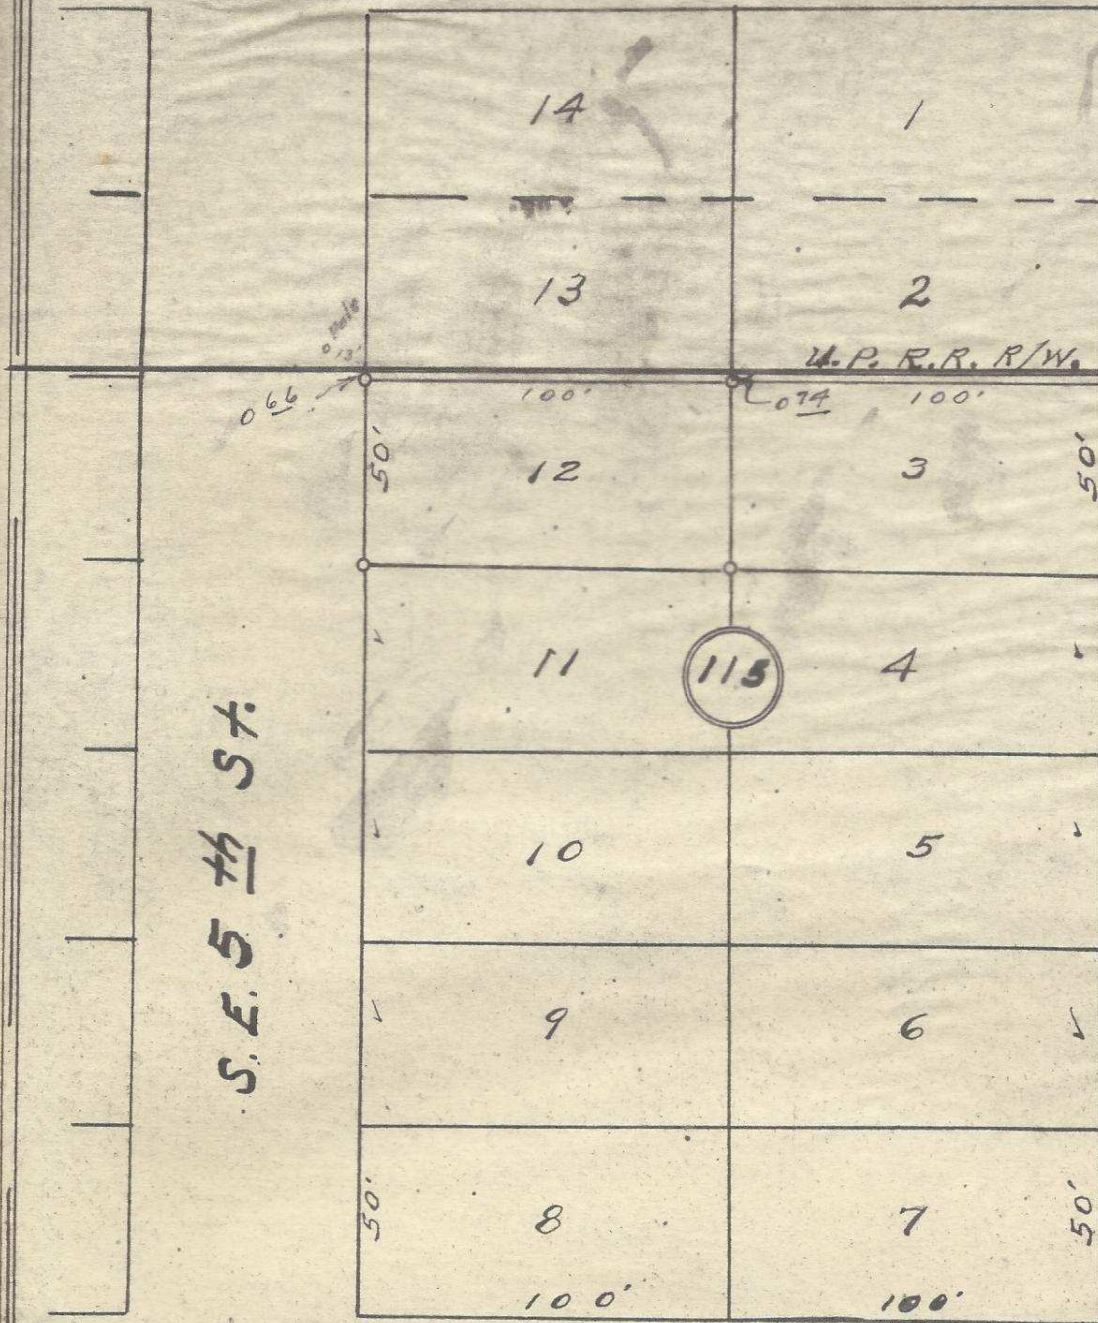 14 1
13 2
Pole
0 13'
U.P. R.R. R/W.
0 66 100' 0 74 100'
50' 12 3 50'
11 115 4
S.E. 5 th St.
10 5
9 6
50' 8 7 50'
100' 100'